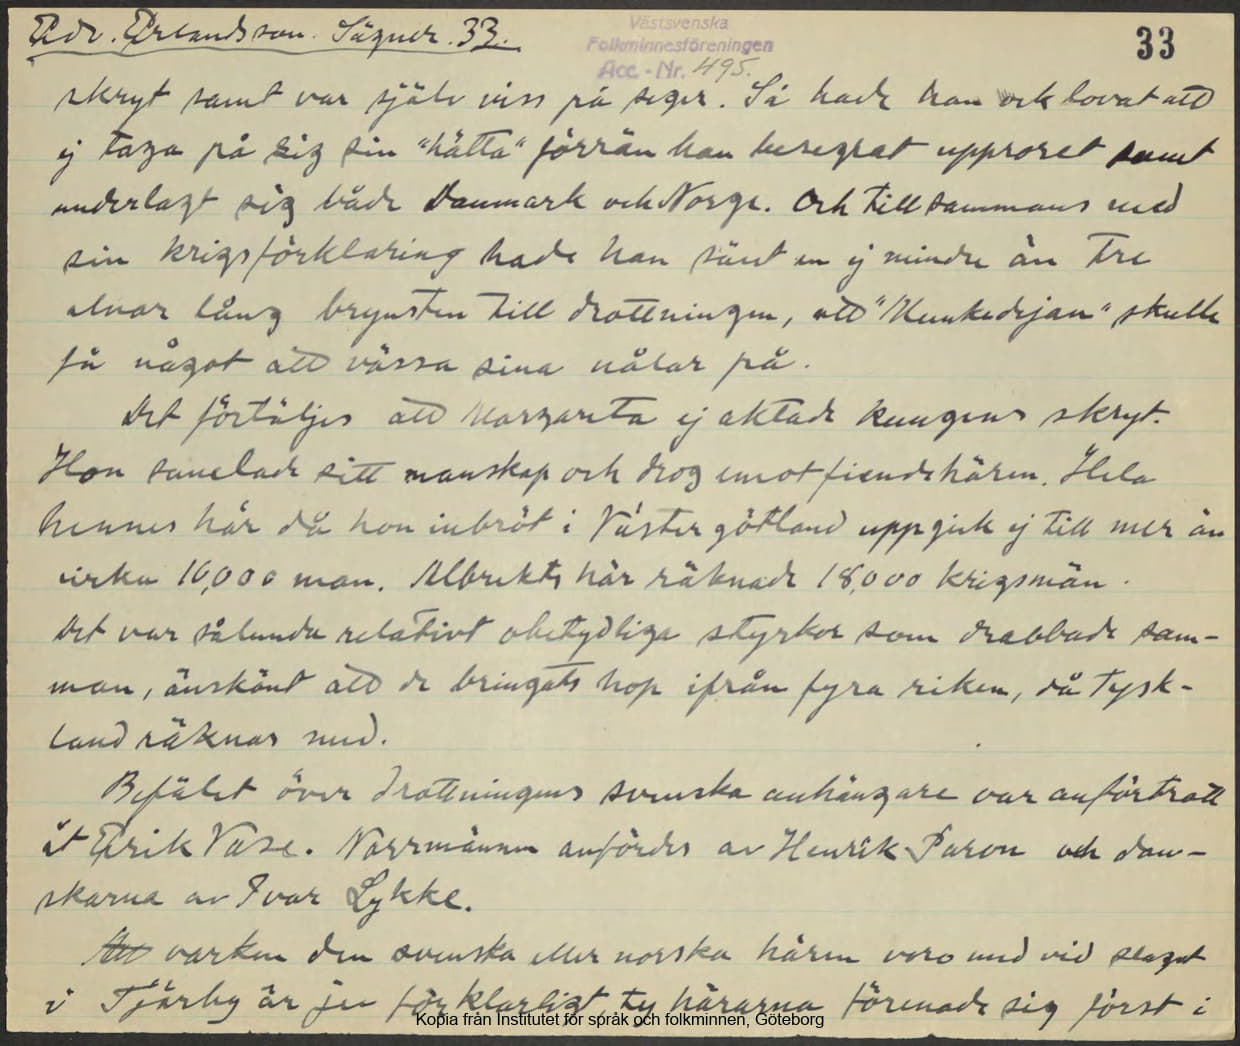 Edv. Erlandsson. Sägner. 33.
Västsvenska
Folkminnesföreningen
Acc.-Nr. 495.
33
skryt samt var själv viss på seger. Så hade han ock lovat att
ej taga på sig sin "hätta" förrän han besegrat upproret samt
underlagt sig både Danmark och Norge. Och tillsammans med
sin krigsförklaring hade han sänt en ej mindre än tre
alnar lång brynsten till drottningen, att "Munkedejan" skulle
få något att vässa sina nålar på.
Det förtäljes att Margareta ej aktade kungens skryt.
Hon samlade sitt manskap och drog emot fiendehären. Hela
hennes här då hon inbröt i Västergötland uppgick ej till mer än
cirka 10,000 man. Albrekts här räknade 18,000 krigsmän.
Det var sålunda relativt obetydliga styrkor som drabbade sam-
man, änskönt att de bringats hop ifrån fyra riken, då Tysk-
land räknas med.
Befälet över drottningens svenska anhängare var anförtrott
åt Erik Vase. Norrmännen anfördes av Henrik Paron och dan-
skarna av Ivar Lykke.
Att varken den svenska eller norska hären voro med vid slaget
i Tjärby är ju förklarligt, ty härarna förenade sig först i
Kopia från Institutet för språk och folkminnen, Göteborg